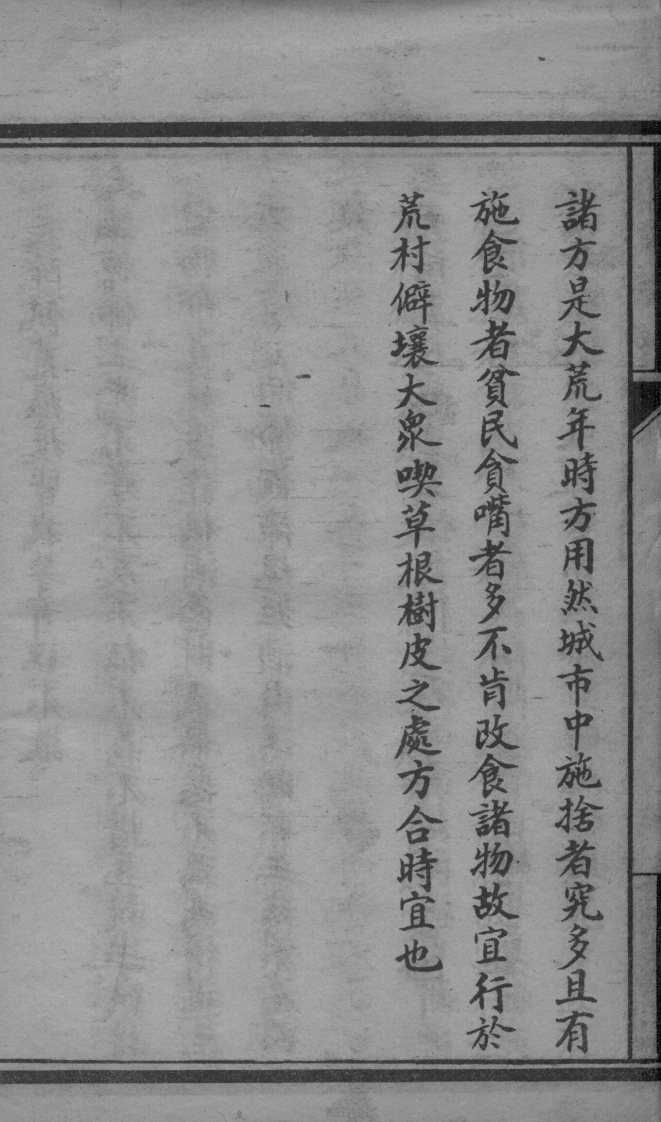 諸方是大荒年時方用然城市中施捨者究多且有
施食物者貧民貪嘴者多不肯改食諸物故宜行於
荒村僻壤大衆喫草根樹皮之處方合時宜也